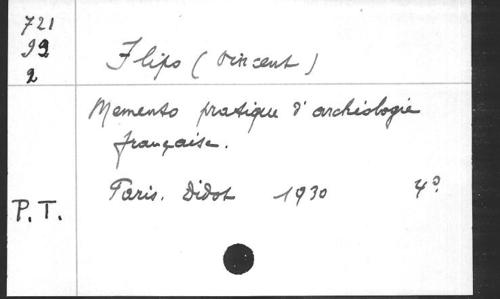 721
92
2
Flipo (Vincent)
Memento pratique d'archéologie
française.
Paris. Didot 1930 4°.
P. T.